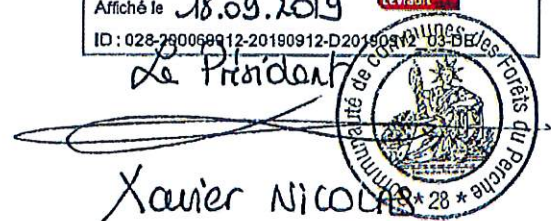 Affiché le 18.09.2019
Levrault
ID : 028-200069912-20190912-D20190912_03-DE
Le Président
Communauté de communes des Forêts du Perche
* 28 *
Xavier NICOLAS